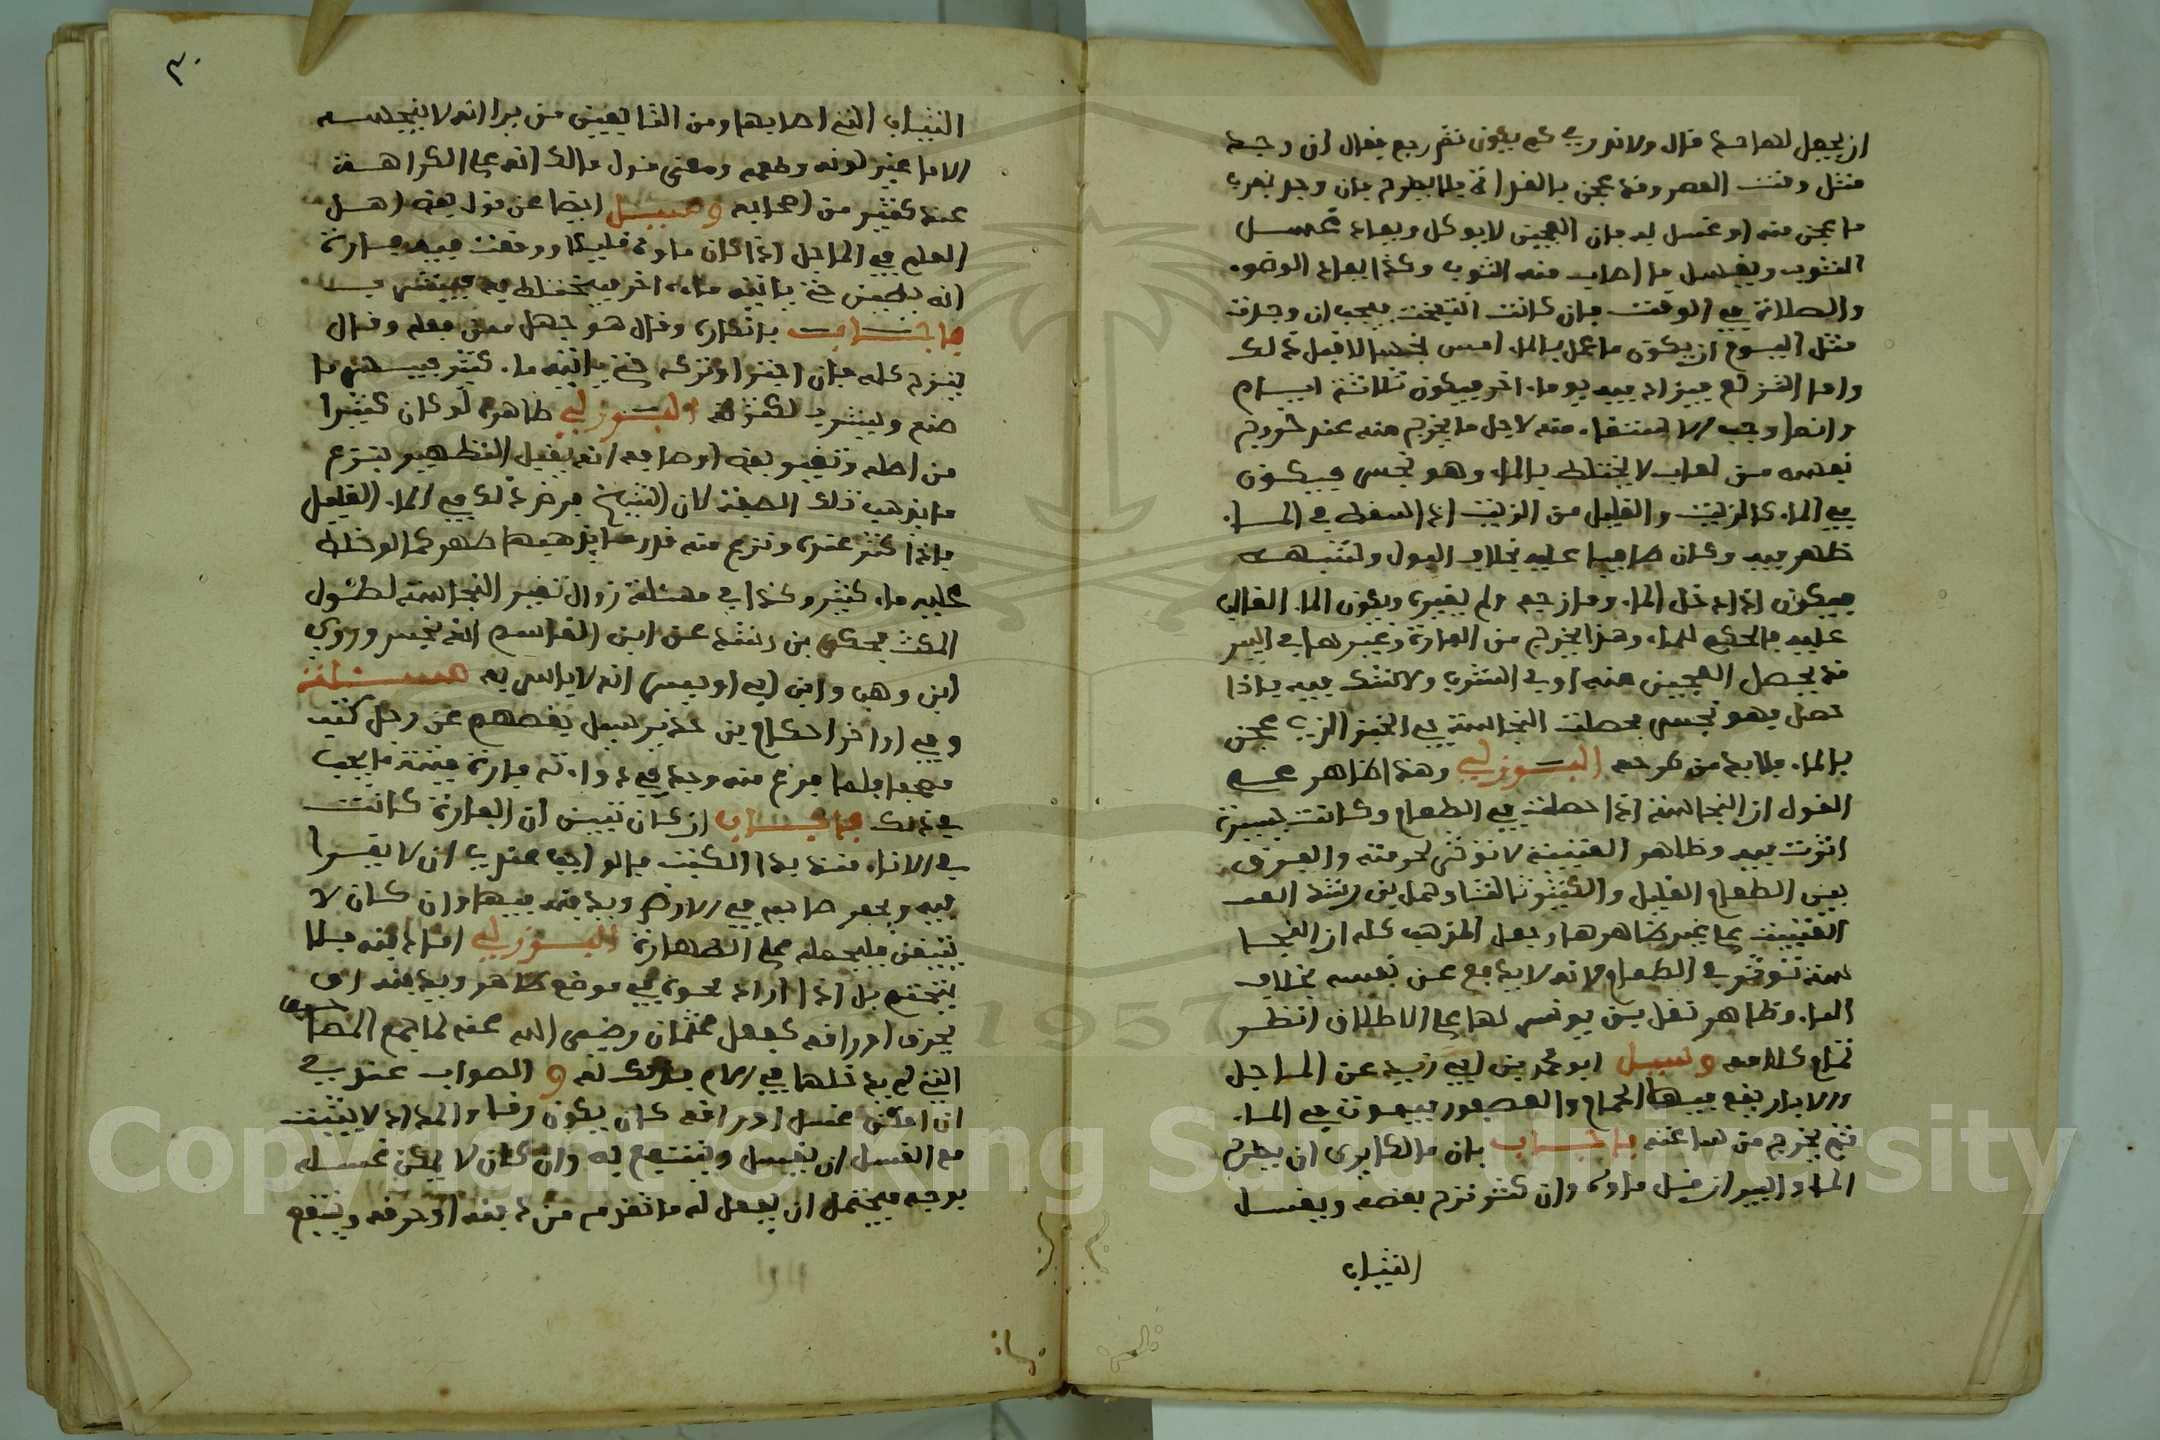 ان يجعل لها حد قال ولا نه ربي كم يكون ثم رجع فقال ان وجد
مثل وقت العصر وقد عجن بالغداة فلا يطرح فان وجد بقرب
ما عجن منه او غسل به فان العجين لا يوكل ويعاد غسل
الثوب ويغسل ما اصاب منه الثوب وكذا يعاد الوضوء
والصلاة في الوقت فان كانت انتفخت فيجب ان وجدت
مثل اليوم ان يكون ما عمل بالماء امس نجسا لا قبل ذلك
واما التي لم فيزاد فيه يوما اخر فيكون ثلاثة ايام
وانما وجب الاستقاء منه لاجل ما يخرج منه عند خروج
نفسه من لعاب لا يختلط بالماء وهو نجس فيكون
في الماء كالزيت والقليل من الزيت اذا سقط في الماء
ظهر فيه وكان طافيا عليه بخلاف البول وشبهه
فيكون اذا دخل الماء ومازجه ولم يغيره ويكون الماء الغالب
عليه فالحكم للماء وهذا يخرج من الفارة وغيرها في البير
قد يحصل العجين منه او في الثوب ولا شك فيه فاذا
حصل فهو نجس فحصلت النجاسة في الخبز الذي عجن
بالماء فلا بد من طرحه البرزلي وهذا ظاهر على
القول ان النجاسة اذا حصلت في الطعام وكانت يسيرة
اثرت فيه وظاهر العتبية لا توثر لحرمته والفرق
بين الطعام القليل والكثير وتاول بن رشد لفظ
العتبية على غير ظاهرها وجعل المذهب كله ان النجا
سة توثر في الطعام لانه لا يدفع عن نفسه بخلاف
الماء وظاهر نقل بن يونس لها على الاطلاق انظر
تمام كلامه وسيل ابو محمد بن ابي زيد عن الماجل
والابار يقع فيها الحمام والعصفور فيموت في الماء
ثم يخرج من ساعته فاجاب بان مالكا يرى ان يطرح
الماء والبير ان قل ماوه وان كثر نزح بعضه ويغسل
الثياب
٣٠
الثياب التي اصابها ومن التابعين من يرا انه لا ينجسه
الا ما غير لونه وطعمه ومعنى قول مالك انه على الكراهة
عند كثير من اصحابه وسيل ايضا عن قول بعض اهل
العلم في الماجل اذا كان ماوه قليلا ووقعت فيه فارة
انه يطين حتى ياتيه ماء اخر فيختلط به فينتشر
فاجاب بانكاره وقال هو جهل ممن فعله وقال
ينزح كله فان اجتزا وتركه حتى ياتيه ماء كثير فبيس ما
صنع ويشرب لكثرته البرزلي ظاهره لو كان كثيرا
من اصله وتغير بعض اوصافه انه يقبل التطهير بنزع
ما يذهب تلك الصفة لان الشيخ فرض ذلك في الماء القليل
فاذا كثر عنده ونزح منه قدر ما يذهبها طهر كما لو خلط
عليه ماء كثير وكذا في مسئلة زوال تغير النجاسة لطول
المكث فحكى بن رشد عن ابن القاسم انه نجس وروي
ابن وهب وابن ابي اويس انه لا باس به مسئلة
وفي اواخر احكام بن حدير سيل بعضهم عن رجل كتب
مصحفا فلما فرغ منه وجد في دواته فارة ميتة ما يجب
في ذلك فاجاب ان كان تيقن ان الفارة كانت
في الاناء منذ بدا الكتب فالواجب عندي ان لا يقرا
فيه ويحفر صاحبه في الارض ويدفنه فيها وان كان لا
يتيقن فليحمله على الطهارة البرزلي اما دفنه فلا
يتحتم بل اذا اراد محوه في موضع طاهر ويدفنه او
يحرق اوراقه كفعل عثمان رضي الله عنه لما جمع المصاحف
التي لم يدخلها في الامام فذلك له والصواب عندي
ان امكن غسل اوراقه كان يكون رقا والمداد لا يثبت
مع الغسل ان يغسل وينتفع به وان كان لا يمكن غسله
بوجه فيحتمل ان يفعل له ما تقدم من دفنه او حرقه وينتفع